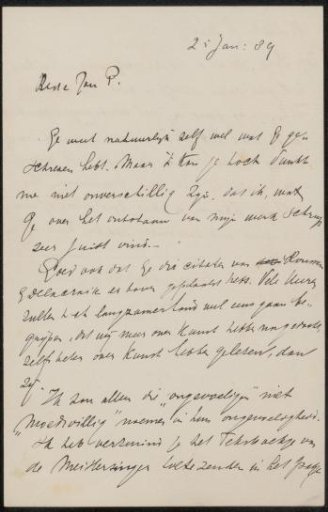 25 Jan: 89
Beste Jan P.
Ge weet natuurlijk zelf wel wat ge ge-
schreven hebt. Maar ik kan je toch dunkt
me niet onverschillig zijn, dat ik, wat
ge over het ontstaan van mijn werk schrijft
zeer juist vind.
Goed ook dat ge die citaten van
& Delacroix er boven geplaatst hebt. Vele
zullen toch langzamerhand wel eens gaan be-
grijpen, dat wij meer over Kunst hebben nagedacht,
zelf beter over Kunst hebben gelezen, dan
zij.
Ik zou alleen die "ongevoeligen" niet
"moedwillig" noemen in hun ongevoeligheid.
Ik heb verzuimd je het Tekstboekje van
de Meistersinger toe te zenden in het